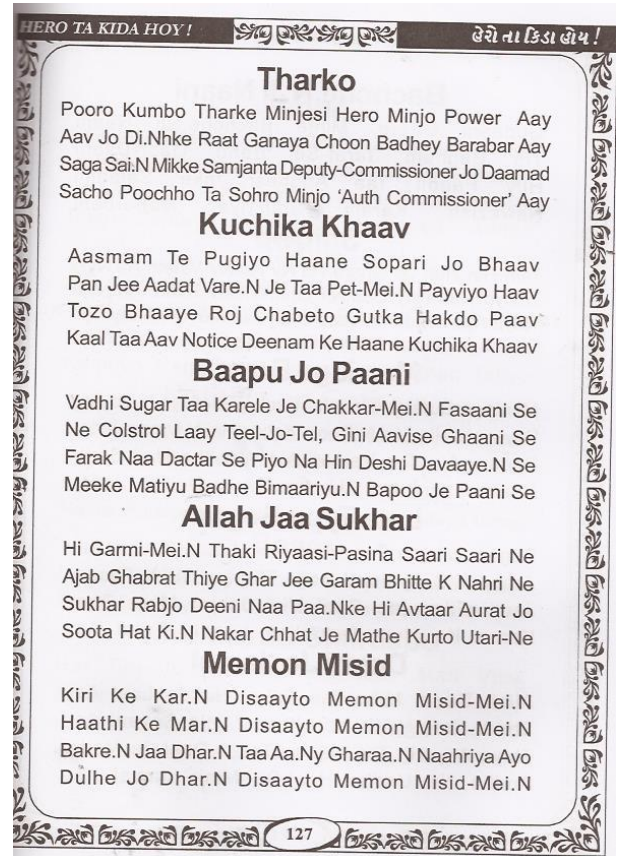 HERO TA KIDA HOY !
હેરો તા કિડા હોય !
Tharko
Pooro Kumbo Tharke Minjesi Hero Minjo Power Aay
Aav Jo Di.Nhke Raat Ganaya Choon Badhey Barabar Aay
Saga Sai.N Mikke Samjanta Deputy-Commissioner Jo Daamad
Sacho Poochho Ta Sohro Minjo ‘Auth Commissioner’ Aay
Kuchika Khaav
Aasmam Te Pugiyo Haane Sopari Jo Bhaav
Pan Jee Aadat Vare.N Je Taa Pet-Mei.N Payviyo Haav
Tozo Bhaaye Roj Chabeto Gutka Hakdo Paav
Kaal Taa Aav Notice Deenam Ke Haane Kuchika Khaav
Baapu Jo Paani
Vadhi Sugar Taa Karele Je Chakkar-Mei.N Fasaani Se
Ne Colstrol Laay Teel-Jo-Tel, Gini Aavise Ghaani Se
Farak Naa Dactar Se Piyo Na Hin Deshi Davaaye.N Se
Meeke Matiyu Badhe Bimaariyu.N Bapoo Je Paani Se
Allah Jaa Sukhar
Hi Garmi-Mei.N Thaki Riyaasi-Pasina Saari Saari Ne
Ajab Ghabrat Thiye Ghar Jee Garam Bhitte K Nahri Ne
Sukhar Rabjo Deeni Naa Paa.Nke Hi Avtaar Aurat Jo
Soota Hat Ki.N Nakar Chhat Je Mathe Kurto Utari-Ne
Memon Misid
Kiri Ke Kar.N Disaayto Memon Misid-Mei.N
Haathi Ke Mar.N Disaayto Memon Misid-Mei.N
Bakre.N Jaa Dhar.N Taa Aa.Ny Gharaa.N Naahriya Ayo
Dulhe Jo Dhar.N Disaayto Memon Misid-Mei.N
127